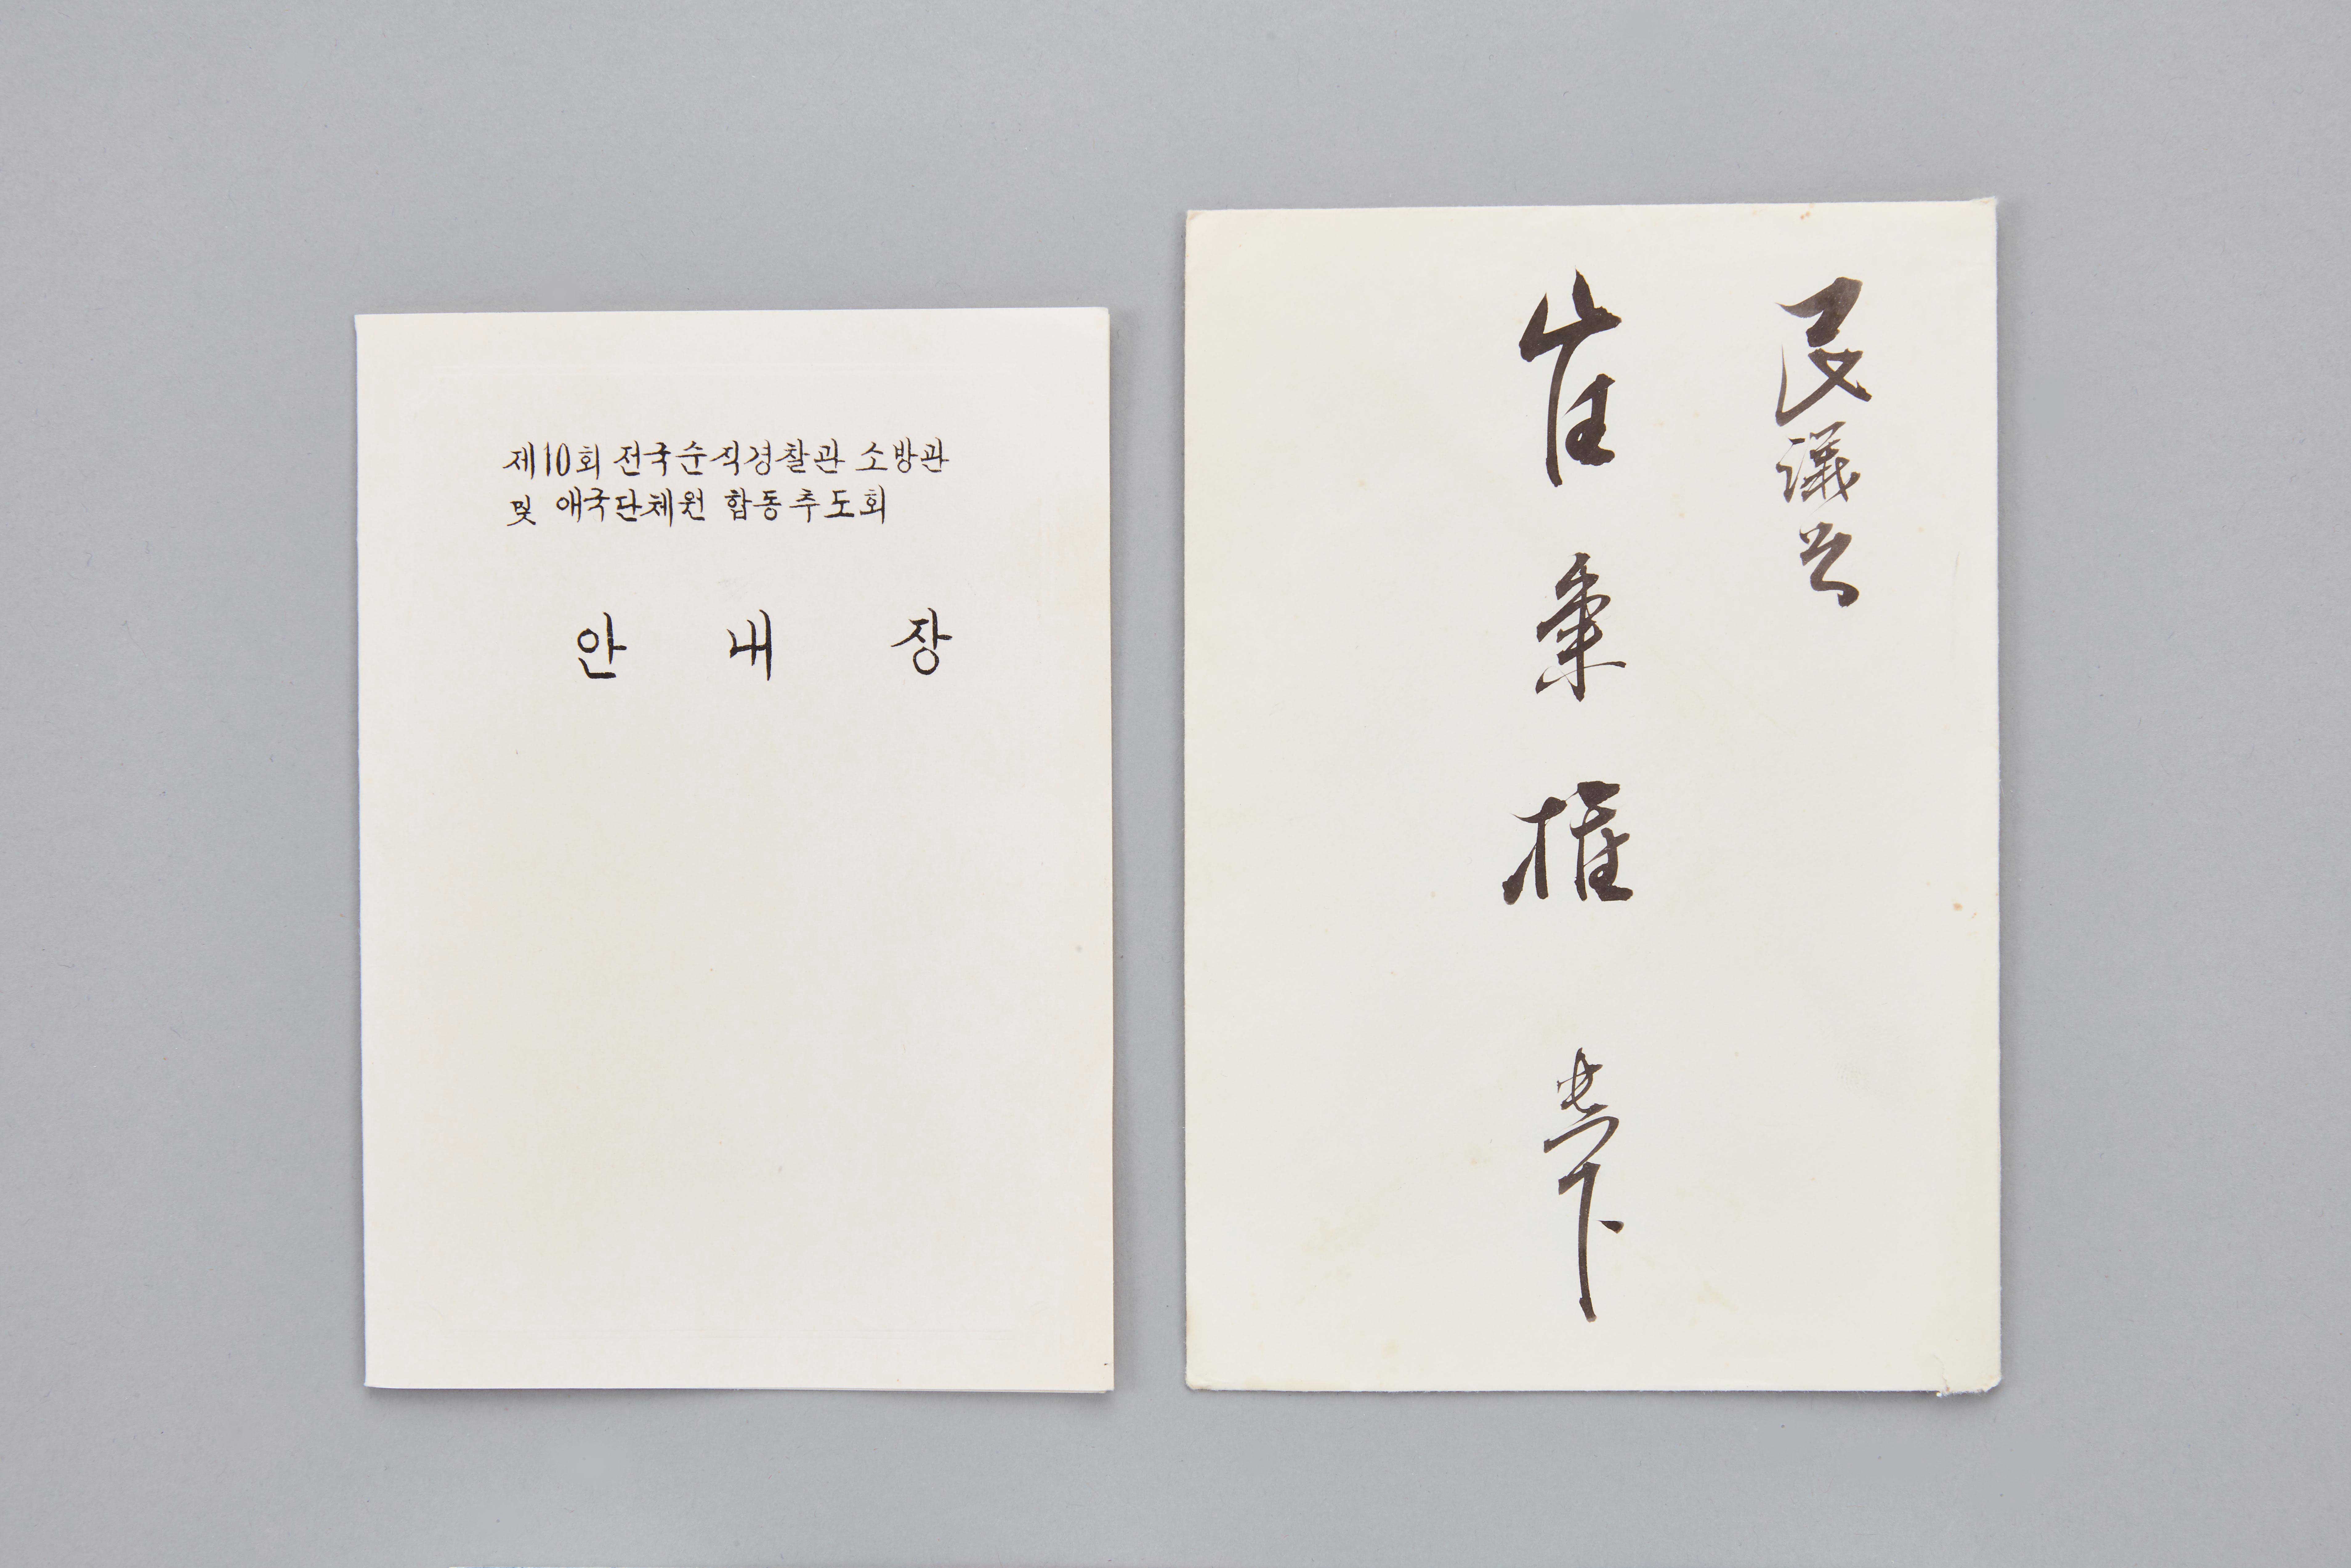 제10회 전국순직경찰관 소방관
및 애국단체원 합동추도회
안내장
民議員
崔秉權 貴下